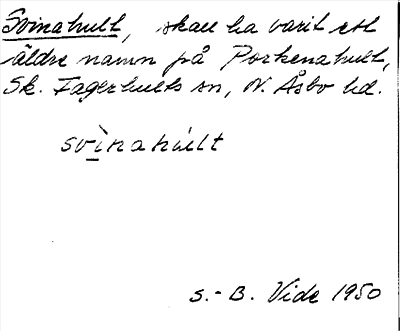 Svinahult, skall ha varit ett
äldre namn på Porkenahult,
Sk. Fagerhults sn, N. Åsbo hd.
svìnahúlt
S.-B. Vide 1950